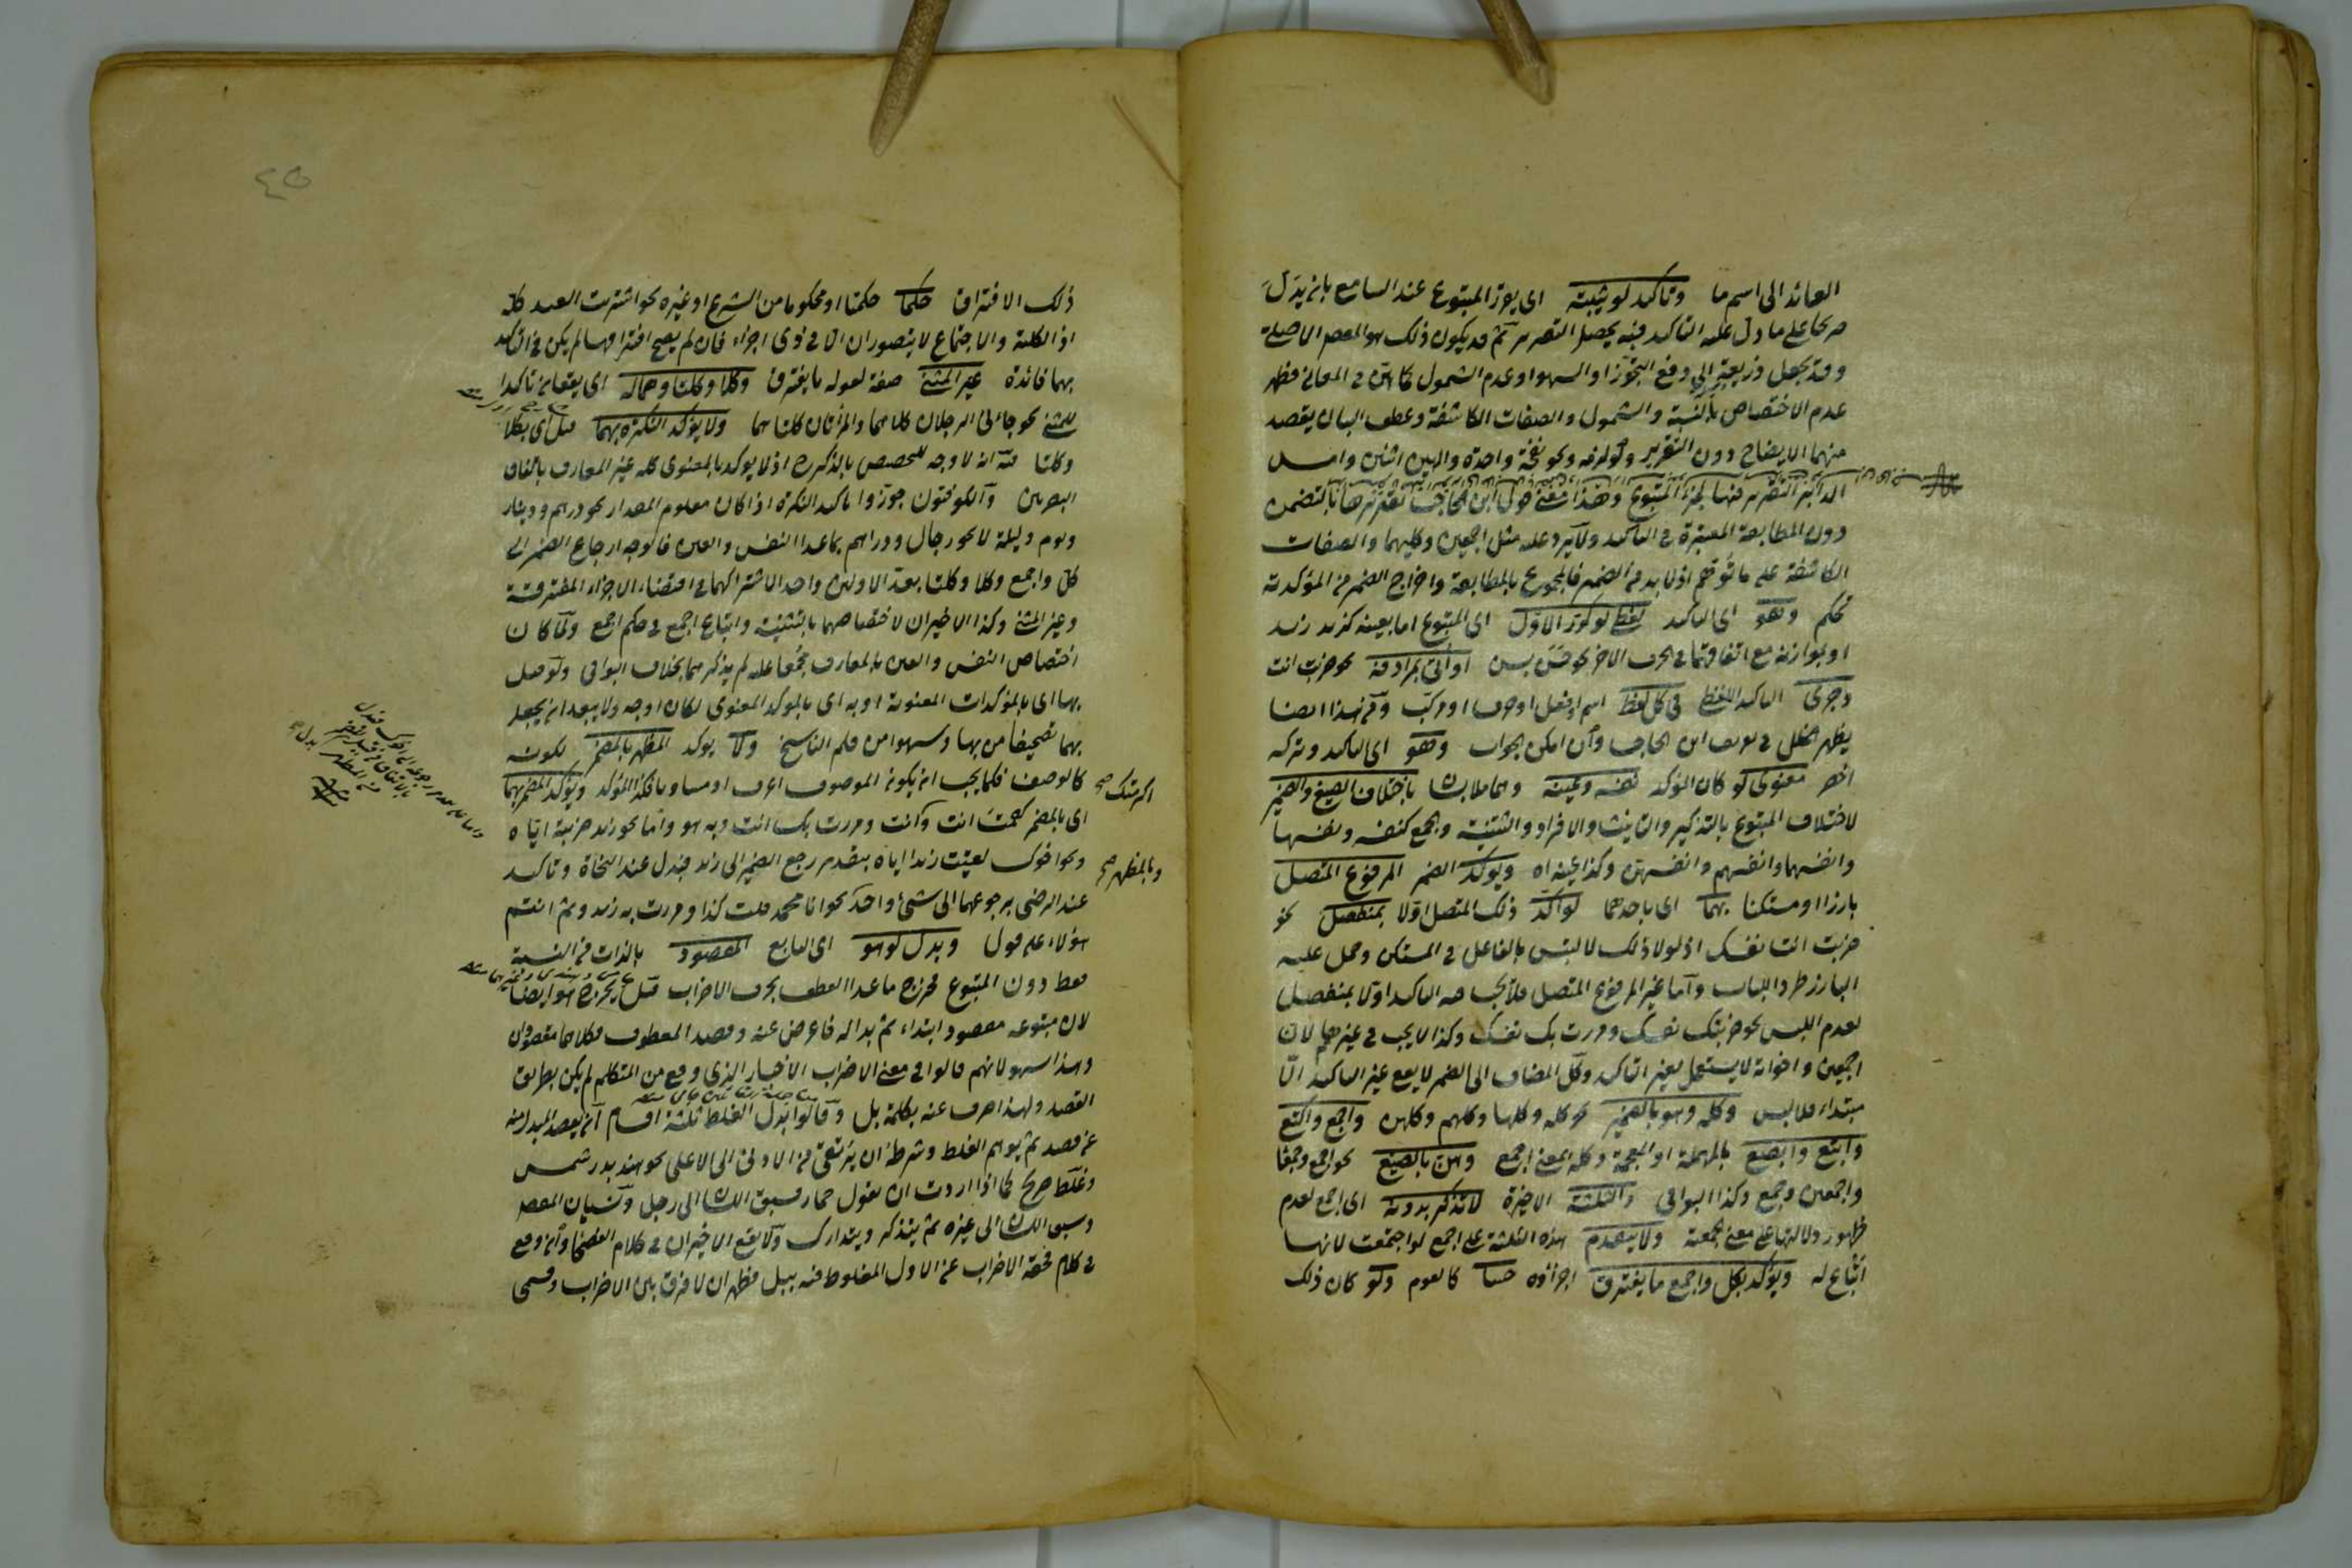 العائد الى اسم ما وتأكيد لو يثبته اى يقرر المتبوع عند السامع بان يدل
صريحا على ما دل عليه التأكيد فبه يحصل التقرير ثم قد يكون ذلك هو المقصد الاصلى
وقد يجعل ذريعة الى دفع التجوز او السهو او عدم الشمول كما بين فى المعانى فظهر
عدم الاختصاص بالنسبة والشمول والصفات الكاشفة وعطف البيان يقصد
منهما الايضاح دون التقرير ونحو نفخة واحدة والهين اثنين وامس
الدابر التقرير فيها لجزء المتبوع وهذا معنى قول ابن الحاجب تقريرها بالتضمن
دون المطابقة المعتبرة فى التأكيد ولا يرد عليه مثل اجمعين وكليهما والصفات
الكاشفة على ما توهم اذ لا بد من الضمير فالمجموع بالمطابقة واخراج الضمير من المؤكدية
تحكم وهو اى التأكيد لفظى لو كرر الاول اى المتبوع اما بعينه كزيد زيد
او بموازنه مع اتفاقهما فى الحرف الاخر نحو حسن بسن او أتى بمرادفه نحو ضربت انت
وجرى التأكيد اللفظى فى كل لفظ اسم او فعل او حرف او مركب ومن هذا ايضا
يظهر الخلل فى تعريف ابن الحاجب وان امكن الجواب وهو اى التأكيد وتركه
اخصر معنوى لو كان المؤكد نفسه وعينه وهما ملابسان باختلاف الصيغ والضمير
لاختلاف المتبوع بالتذكير والتأنيث والافراد والتثنية والجمع كنفسه ونفسها
وانفسهما وانفسهم وانفسهن وكذا عينه اه ويؤكد الضمير المرفوع المتصل
بارزا او مستكنا بهما اى باحدهما لو اكد ذلك المتصل اولا بمنفصل نحو
ضربت انت نفسك اذ لولا ذلك لالتبس بالفاعل فى المستكن وحمل عليه
البارز طردا للباب واما غير المرفوع المتصل فلا يجب فيه التأكيد اولا بمنفصل
لعدم اللبس نحو ضربتك نفسك ومررت بك نفسك وكذا لا يجب فى غيرهما لان
اجمعين واخواته لا يستعمل بغير التأكيد وكل المضاف الى الضمير لا يقع غير التأكيد الا
مبتداء فلا لبس وكله وهو بالضمير نحو كله وكلها وكلهم وكلهن واجمع واكتع
وابتع وابصع بالمهملة او المعجمة وكله بمعنى اجمع وهن بالصيغ نحو اجمع وجمعا
واجمعين وجمع وكذا البواقى والثلثة الاخيرة لا تذكر بدونه اى اجمع لعدم
ظهور دلالتها على معنى الجمعية ولا يتقدم هذه الثلثة على اجمع لو اجتمعت لانها
اتباع له ويؤكد بكل واجمع ما يفترق اجزاؤه حسا كالقوم ولو كان ذلك
٤٥
ذلك الافتراق حكما حكميا او محكوما من الشرع او غيره نحو اشتريت العبد كله
اذ الكلية والاجتماع لا يتصوران الا فى ذى اجزاء فان لم يصح افتراقها لم يكن فى التأكيد
بهما فائدة غير المثنى صفة لقوله ما يفترق وكلا وكلتا وهما له اى يقعان تأكيدا
للمثنى نحو جاءنى الرجلان كلاهما والمرأتان كلتاهما ولا يؤكد النكرة بهما قيل اى بكلا
وكلتا فيه انه لا وجه للتخصيص بالذكر اذ لا يؤكد بالمعنوى كله غير المعارف باتفاق
البصريين والكوفيون جوزوا تأكيد النكرة اذا كان معلوم المقدار نحو درهم ودينار
ويوم وليلة لا نحو رجال ودراهم بما عدا النفس والعين فالوجه ارجاع الضمير الى
كل واجمع وكلا وكلتا بعد الاولين واحد الاشتراكهما فى اقتضاء الاجزاء المفترقة
وغير المثنى وكذا الاخيران لاختصاصهما بالتثنية واتباع اجمع فى حكم اجمع ولما كان
اختصاص النفس والعين بالمعارف مجمعا عليه لم يذكرهما بخلاف البواقى ولو قيل
بها اى بالمؤكدات المعنوية او به اى بالمؤكد المعنوى لكان اوجه ولا يبعد ان يجعل
بهما تصحيفا من بها وسهوا من قلم الناسخ ولا يؤكد المظهر بالمضمر لكونه
كالوصف فكما يجب ان يكون الموصوف اعرف او مساويا فكذا المؤكد ويؤكد المضمر بهما
اى بالمضمر كقمت انت وكانت ومررت بك انت وبه هو واما نحو زيد ضربته اياه
ونحو اخوك لقيت زيدا اياه بتقدير رجع الضمير الى زيد فبدل عند النحاة وتأكيد
عند الرضى برجوعهما الى شئ واحد نحو انا محمد قلت كذا ومررت به زيد وثم انتم
هؤلاء على قول وبدل لو هو اى التابع المقصود بالذات من النسبة
فقط دون المتبوع فخرج ما عدا العطف بحرف الاضراب قيل يخرج هو ايضا
لان متبوعه مقصود ابتداء ثم بدا له فاعرض عنه وقصد المعطوف فكلاهما مقصودان
وهذا سهو لانهم قالوا فى معنى الاضراب الاخبار الذى وقع من المتكلم لم يكن بطريق
القصد ولهذا صرف عنه بكلمة بل وقالوا بدل الغلط ثلثة اقسام ان يقصد المبدل منه
عن قصد ثم يوهم الغلط وشرطه ان يرتقى من الادنى الى الاعلى نحو هند بدر شمس
وغلط صريح كما اذا اردت ان تقول حمار فسبق اللسان الى رجل ونسيان المقصد
وسبق اللسان الى غيره ثم يتذكر ويتدارك ولا يقع الاخيران فى كلام الفصحا وان وقع
فى كلام فحقه الاضراب عن الاول المغلوط فيه ببل فظهر ان لا فرق بين الاضراب وقسمى
وبالمظهر صح